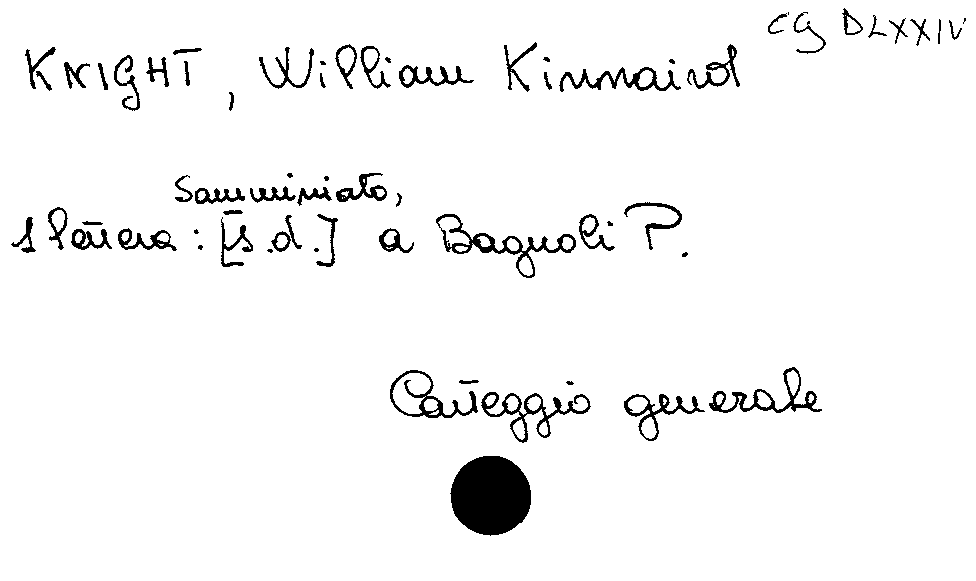 CG DLXXIV
KNIGHT, William Kinnaird
Samminiato,
1 lettera: [s.d.] a Bagnoli P.
Carteggio generale